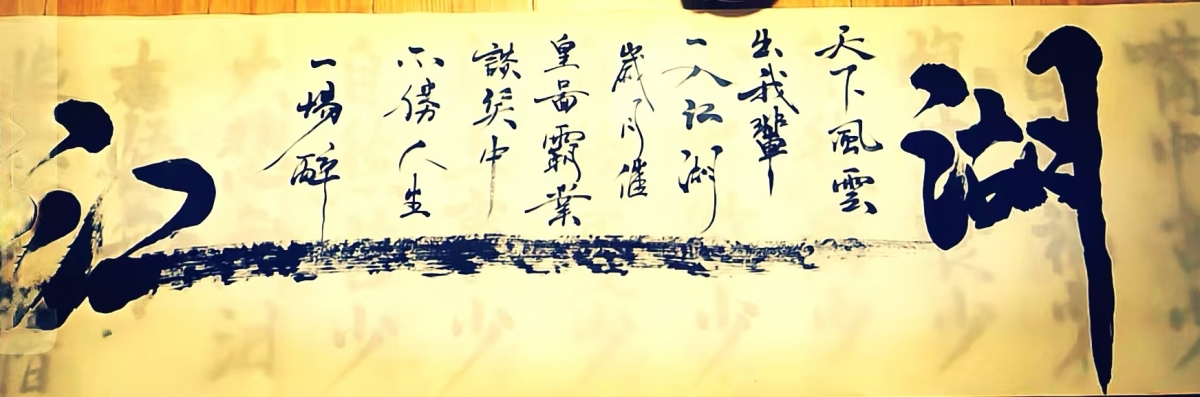 江湖
天下風雲
出我輩
一入江湖
歲月催
皇圖霸業
談笑中
不勝人生
一場醉